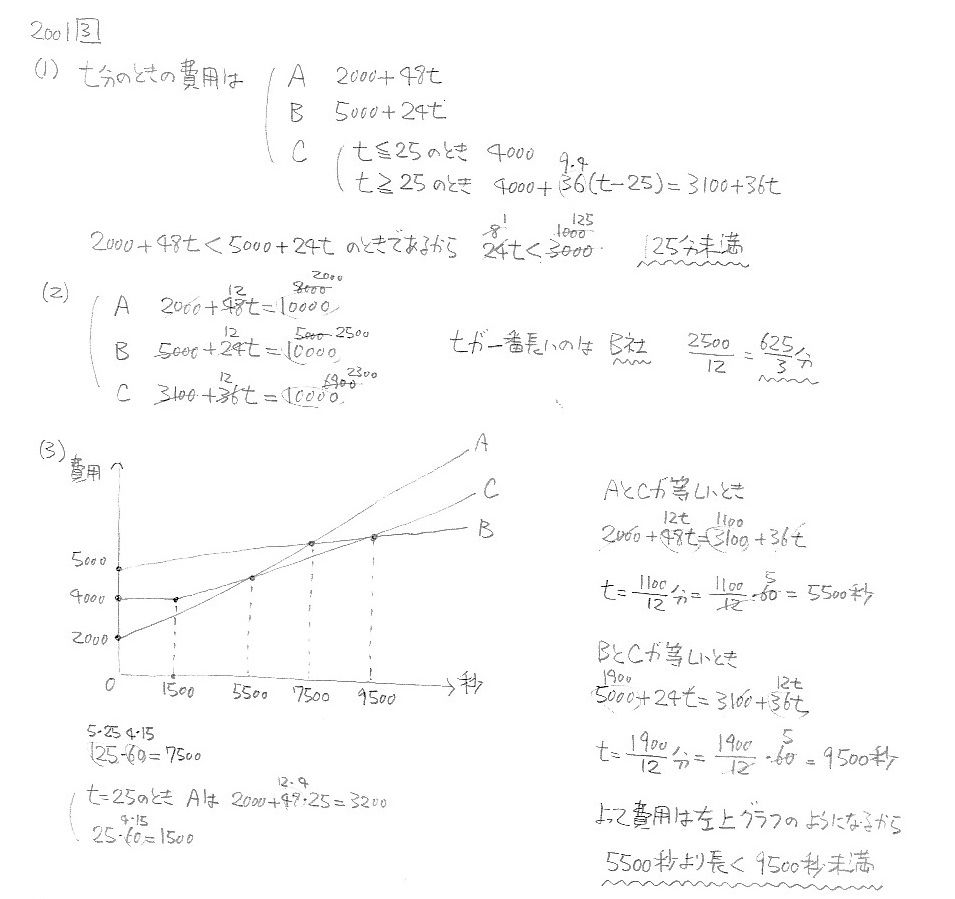 2001 3
(1) t分のときの費用は
A 2000+48t
B 5000+24t
C t≦25のとき 4000
9・4
t≧25のとき 4000+36(t-25)=3100+36t
2000+48t<5000+24t のときであるから 24t<3000 125分未満
8 1 1000 125
(2)
A 2000+48t=10000
12 8000 2000
B 5000+24t=10000
12 5000 2500
C 3100+36t=10000
12 6900 2300
tが一番長いのは B社 2500/12=625/3分
(3)
費用
5000
4000
2000
0 1500 5500 7500 9500 秒
A
C
B
5・25 4・15
125・60=7500
12・4
t=25のとき Aは 2000+48・25=3200
4・15
25・60=1500
AとCが等しいとき
12t 1100
2000+48t=3100+36t
t=1100/12分=1100/12・60=5500秒
5
BとCが等しいとき
1900 12t
5000+24t=3100+36t
t=1900/12分=1900/12・60=9500秒
5
よって費用は左上グラフのようになるから
5500秒より長く 9500秒未満